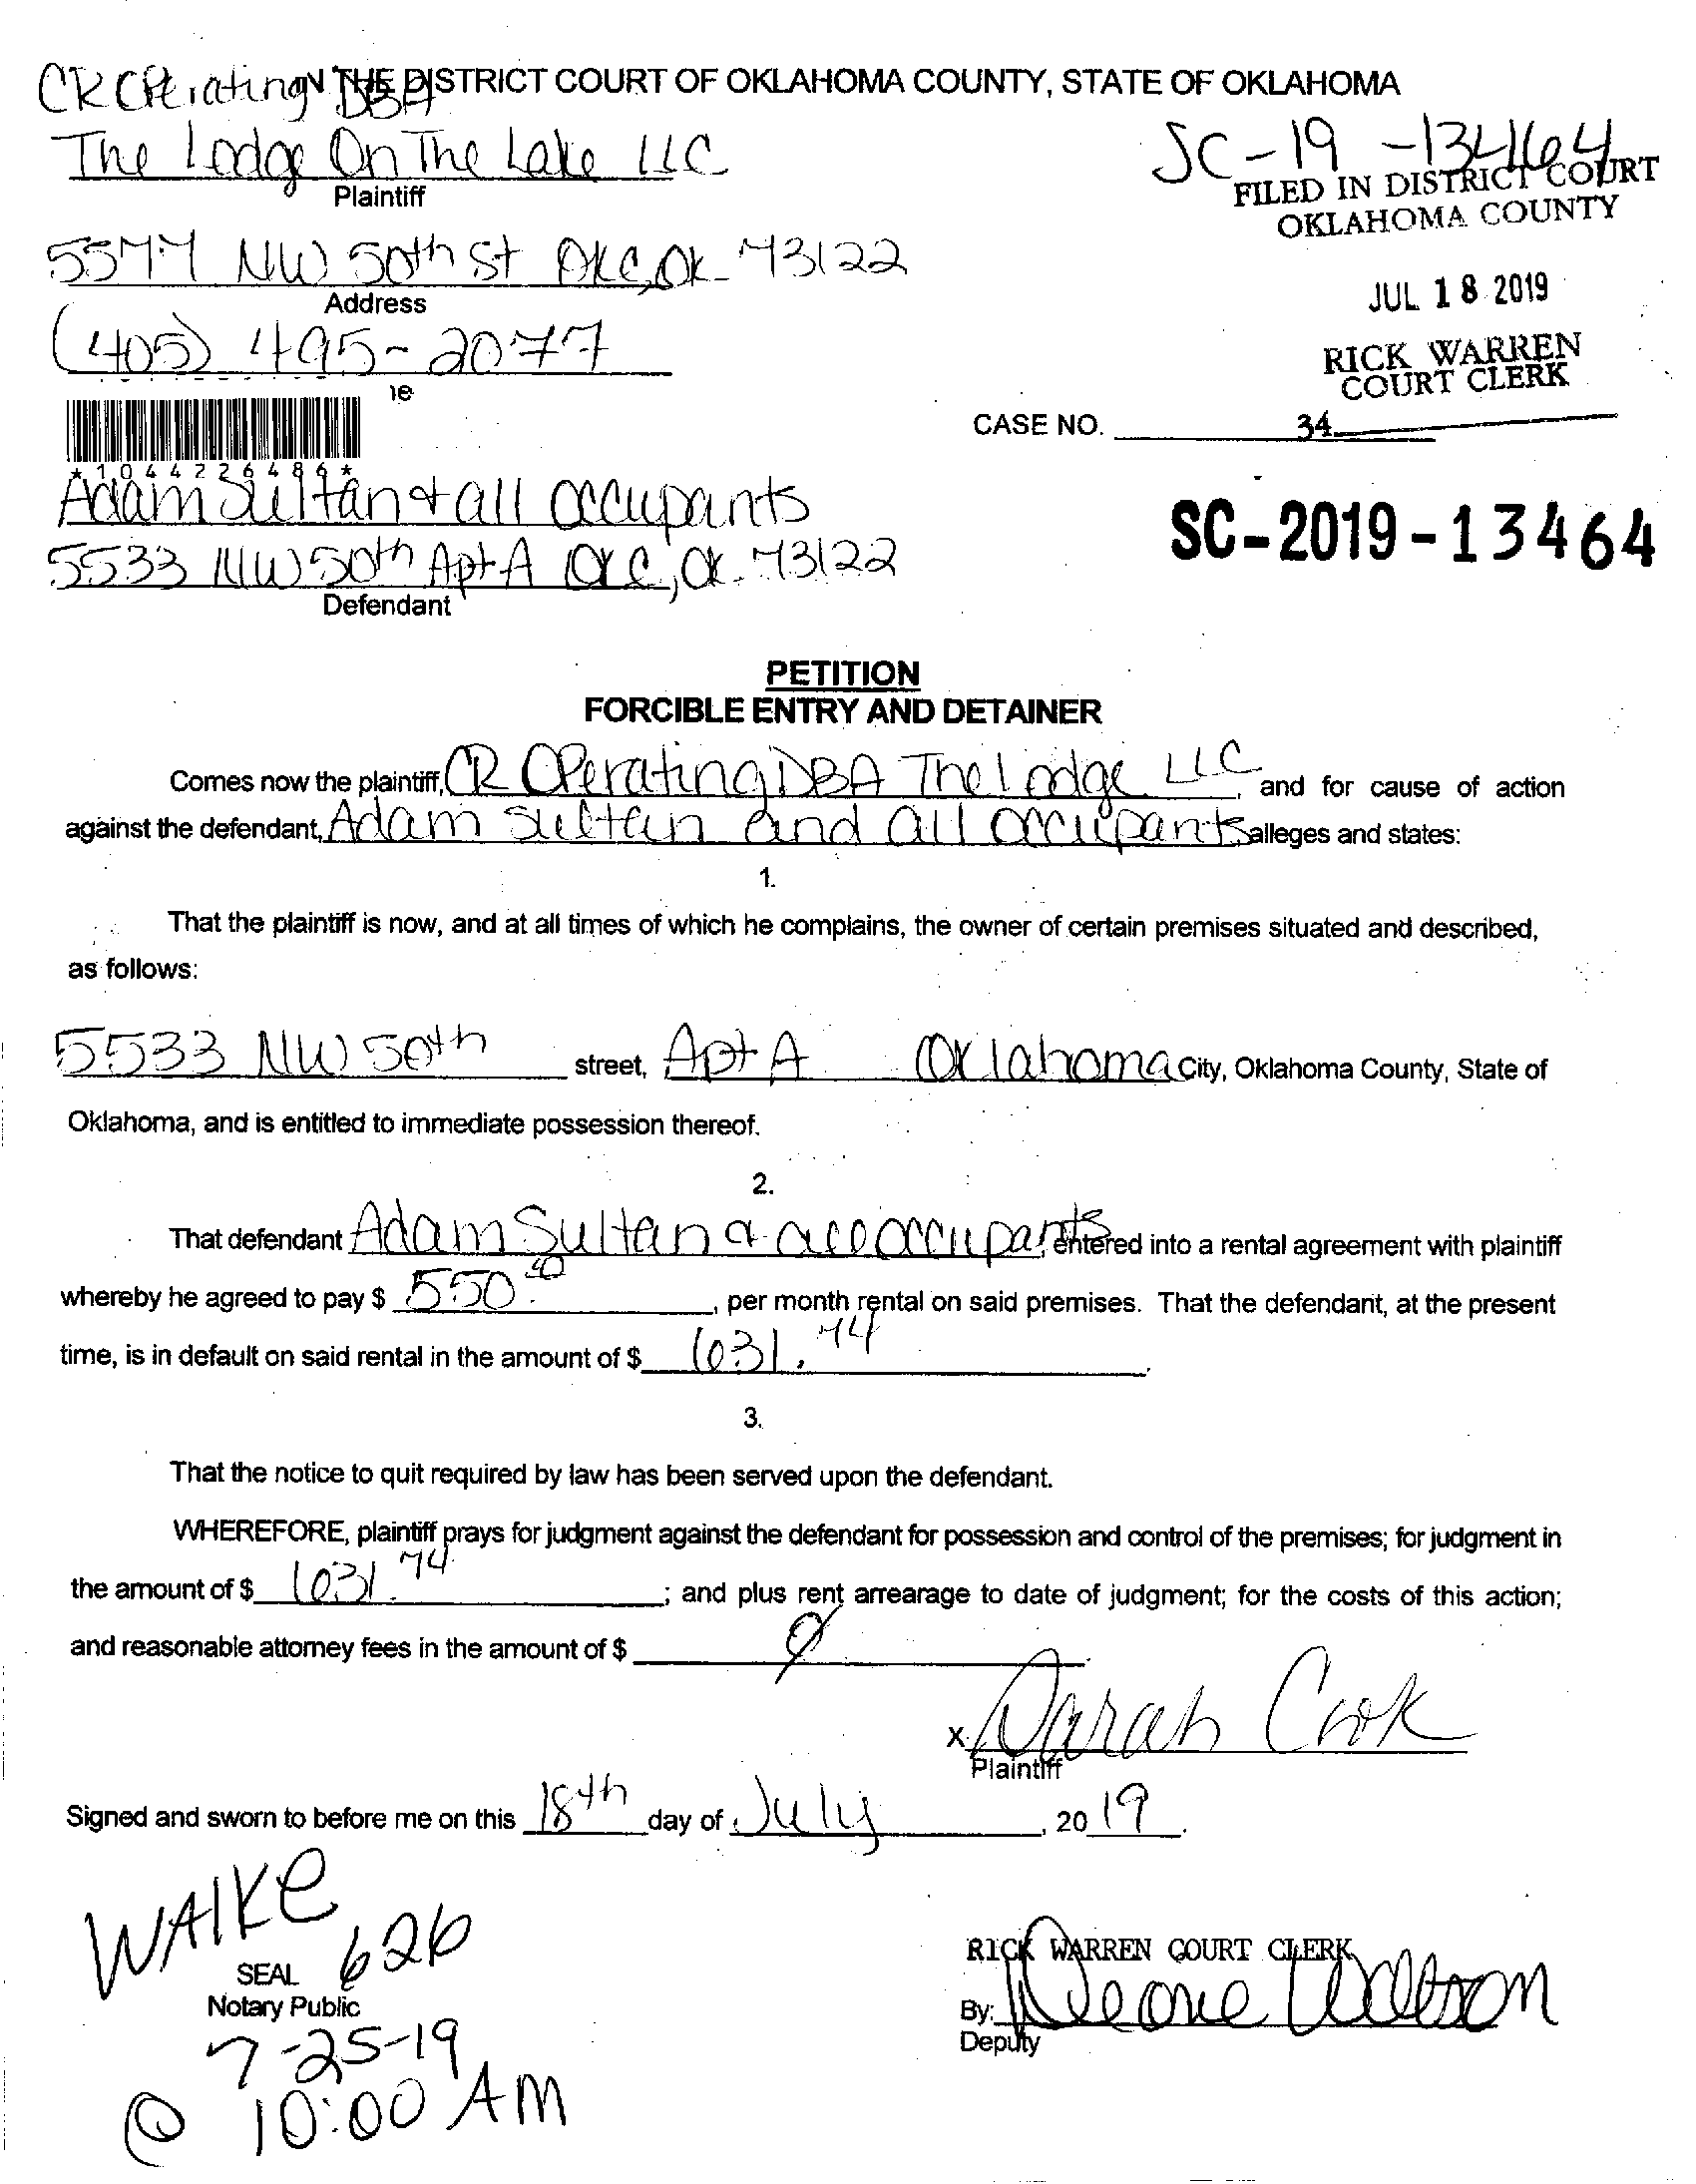 CR Operating DBA
IN THE DISTRICT COURT OF OKLAHOMA COUNTY, STATE OF OKLAHOMA
The Lodge On The Lake LLC
Plaintiff
SC-19-13464
FILED IN DISTRICT COURT
OKLAHOMA COUNTY
5577 NW 50th St OKC, OK 73122
Address
JUL 18 2019
(405) 495-2077
RICK WARREN
COURT CLERK
CASE NO.
34
*1044226486*
Adam Sultan + all occupants
SC-2019-13464
5533 NW 50th Apt A OKC, OK. 73122
Defendant
PETITION
FORCIBLE ENTRY AND DETAINER
Comes now the plaintiff, CR Operating DBA The Lodge LLC, and for cause of action
against the defendant, Adam Sultan and all occupants alleges and states:
1.
That the plaintiff is now, and at all times of which he complains, the owner of certain premises situated and described,
as follows:
5533 NW 50th street, Apt A Oklahoma City, Oklahoma County, State of
Oklahoma, and is entitled to immediate possession thereof.
2.
That defendant Adam Sultan & all occupants, entered into a rental agreement with plaintiff
whereby he agreed to pay $ 550.00, per month rental on said premises. That the defendant, at the present
time, is in default on said rental in the amount of $ 1031.74.
3.
That the notice to quit required by law has been served upon the defendant.
WHEREFORE, plaintiff prays for judgment against the defendant for possession and control of the premises; for judgment in
the amount of $ 1031.74; and plus rent arrearage to date of judgment; for the costs of this action;
and reasonable attorney fees in the amount of $ 0.
X Sarah Cook
Plaintiff
Signed and sworn to before me on this 18th day of July, 2019.
WALKE
626
SEAL
Notary Public
RICK WARREN COURT CLERK
By:
Deputy
7-25-19
@ 10:00 AM